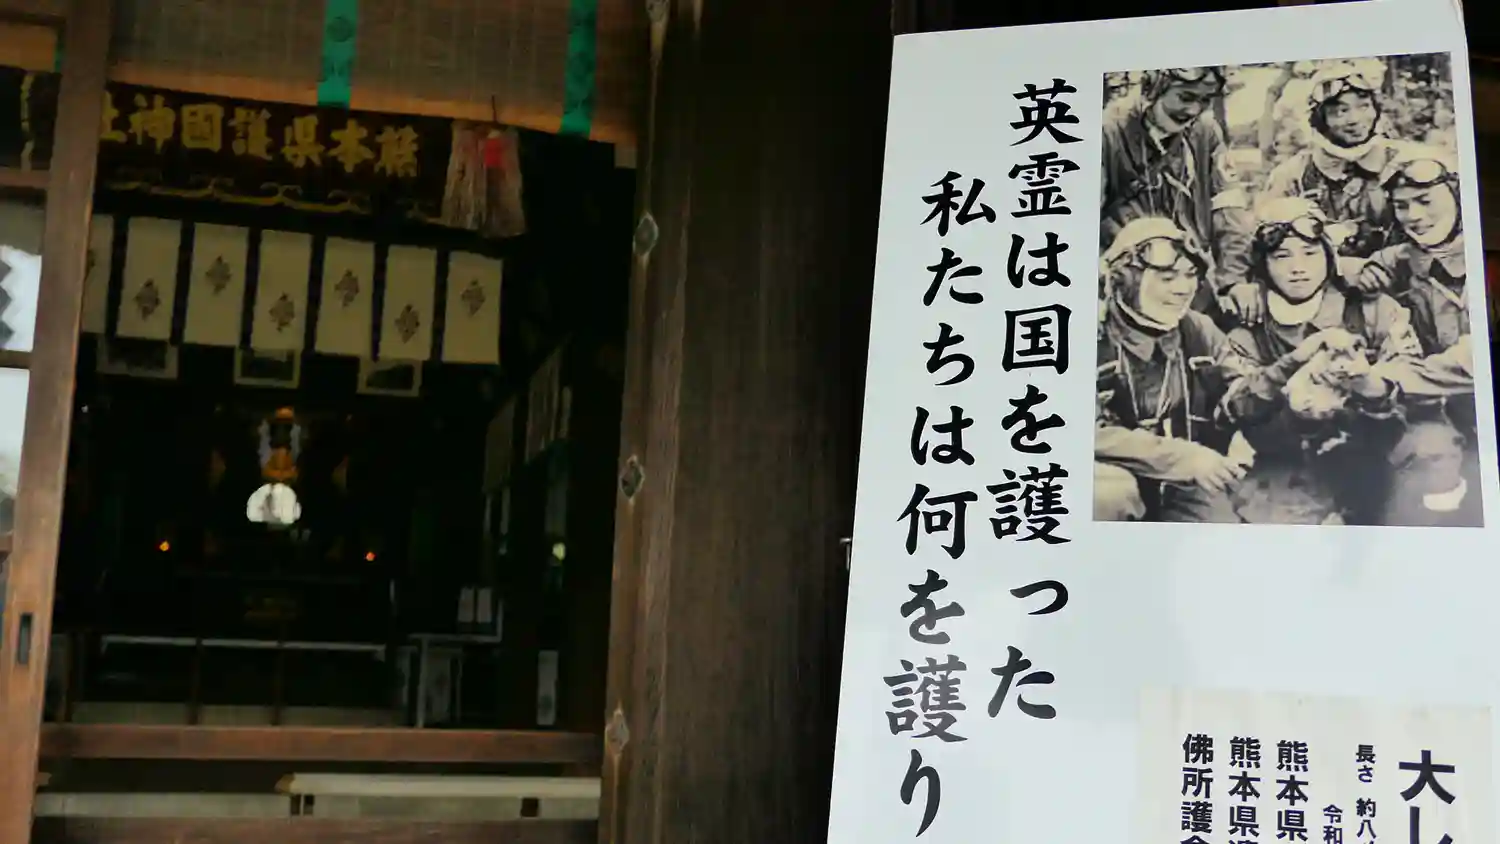 熊本県護國神社
英霊は国を護った
私たちは何を護り
大し
長さ 約八
令和
熊本県
熊本県遺
佛所護念